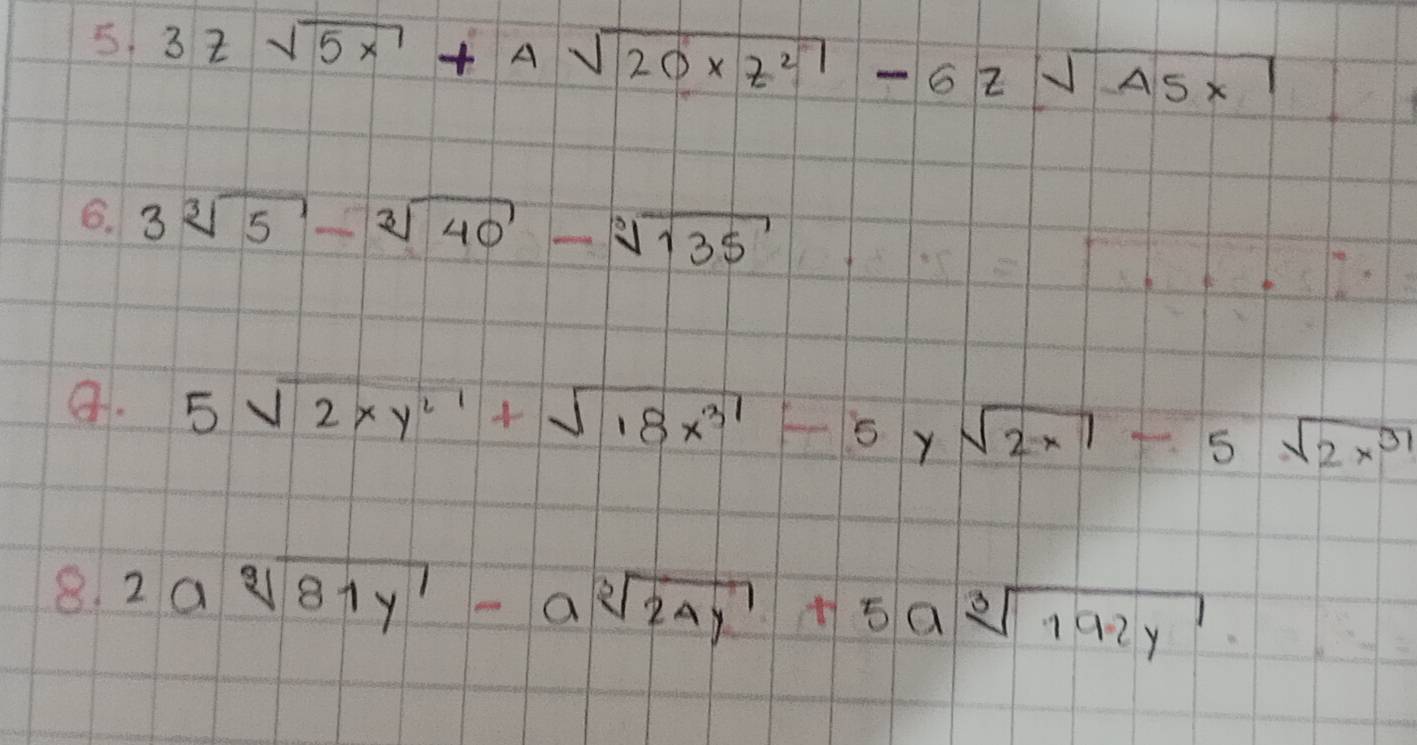 5. 3z √5x + 4 √20xz² - 6z √45x
6. 3 ∛5 - ∛40 - ∛135
7. 5 √2xy² + √18x³ - 5y √2x - 5 √2x³
8. 2a ∛81y - a ∛24y + 5a ∛192y